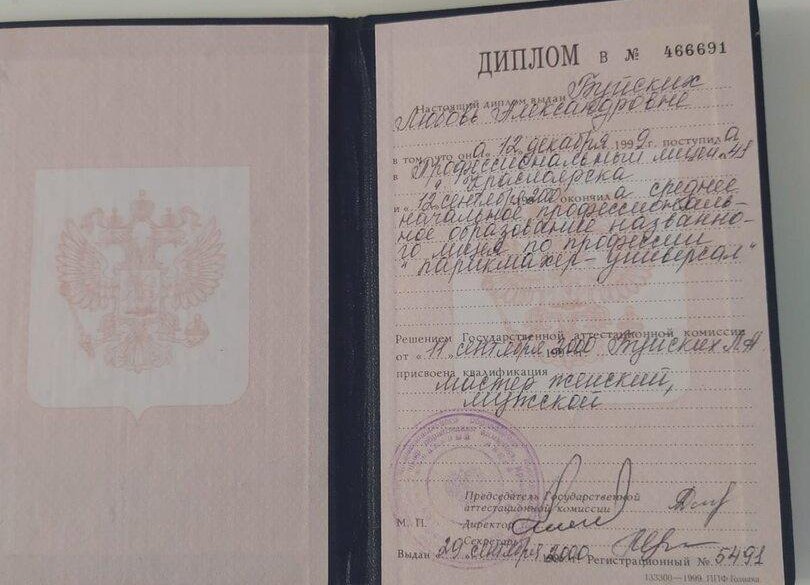 ДИПЛОМ В № 466691
Настоящий диплом выдан Буйских
Любовь Александровне
в том, что она „12 декабря 1999 г. поступила
в Профессиональный лицей №
г. Красноярска
и „12 сентября 2000 окончила среднее
начальное профессиональ-
ное образование названно-
го лицея по профессии
"парикмахер-универсал"
Решением Государственной аттестационной комиссии
от „11 „сентября 2000 Буйских Л А
присвоена квалификация
мастер женский,
мужской
Председатель Государственной
аттестационной комиссии
М. П. Директор
Секретарь
Выдан „29 „сентября 2000 Регистрационный № 5491
133300—1999. ППФ Гознака.